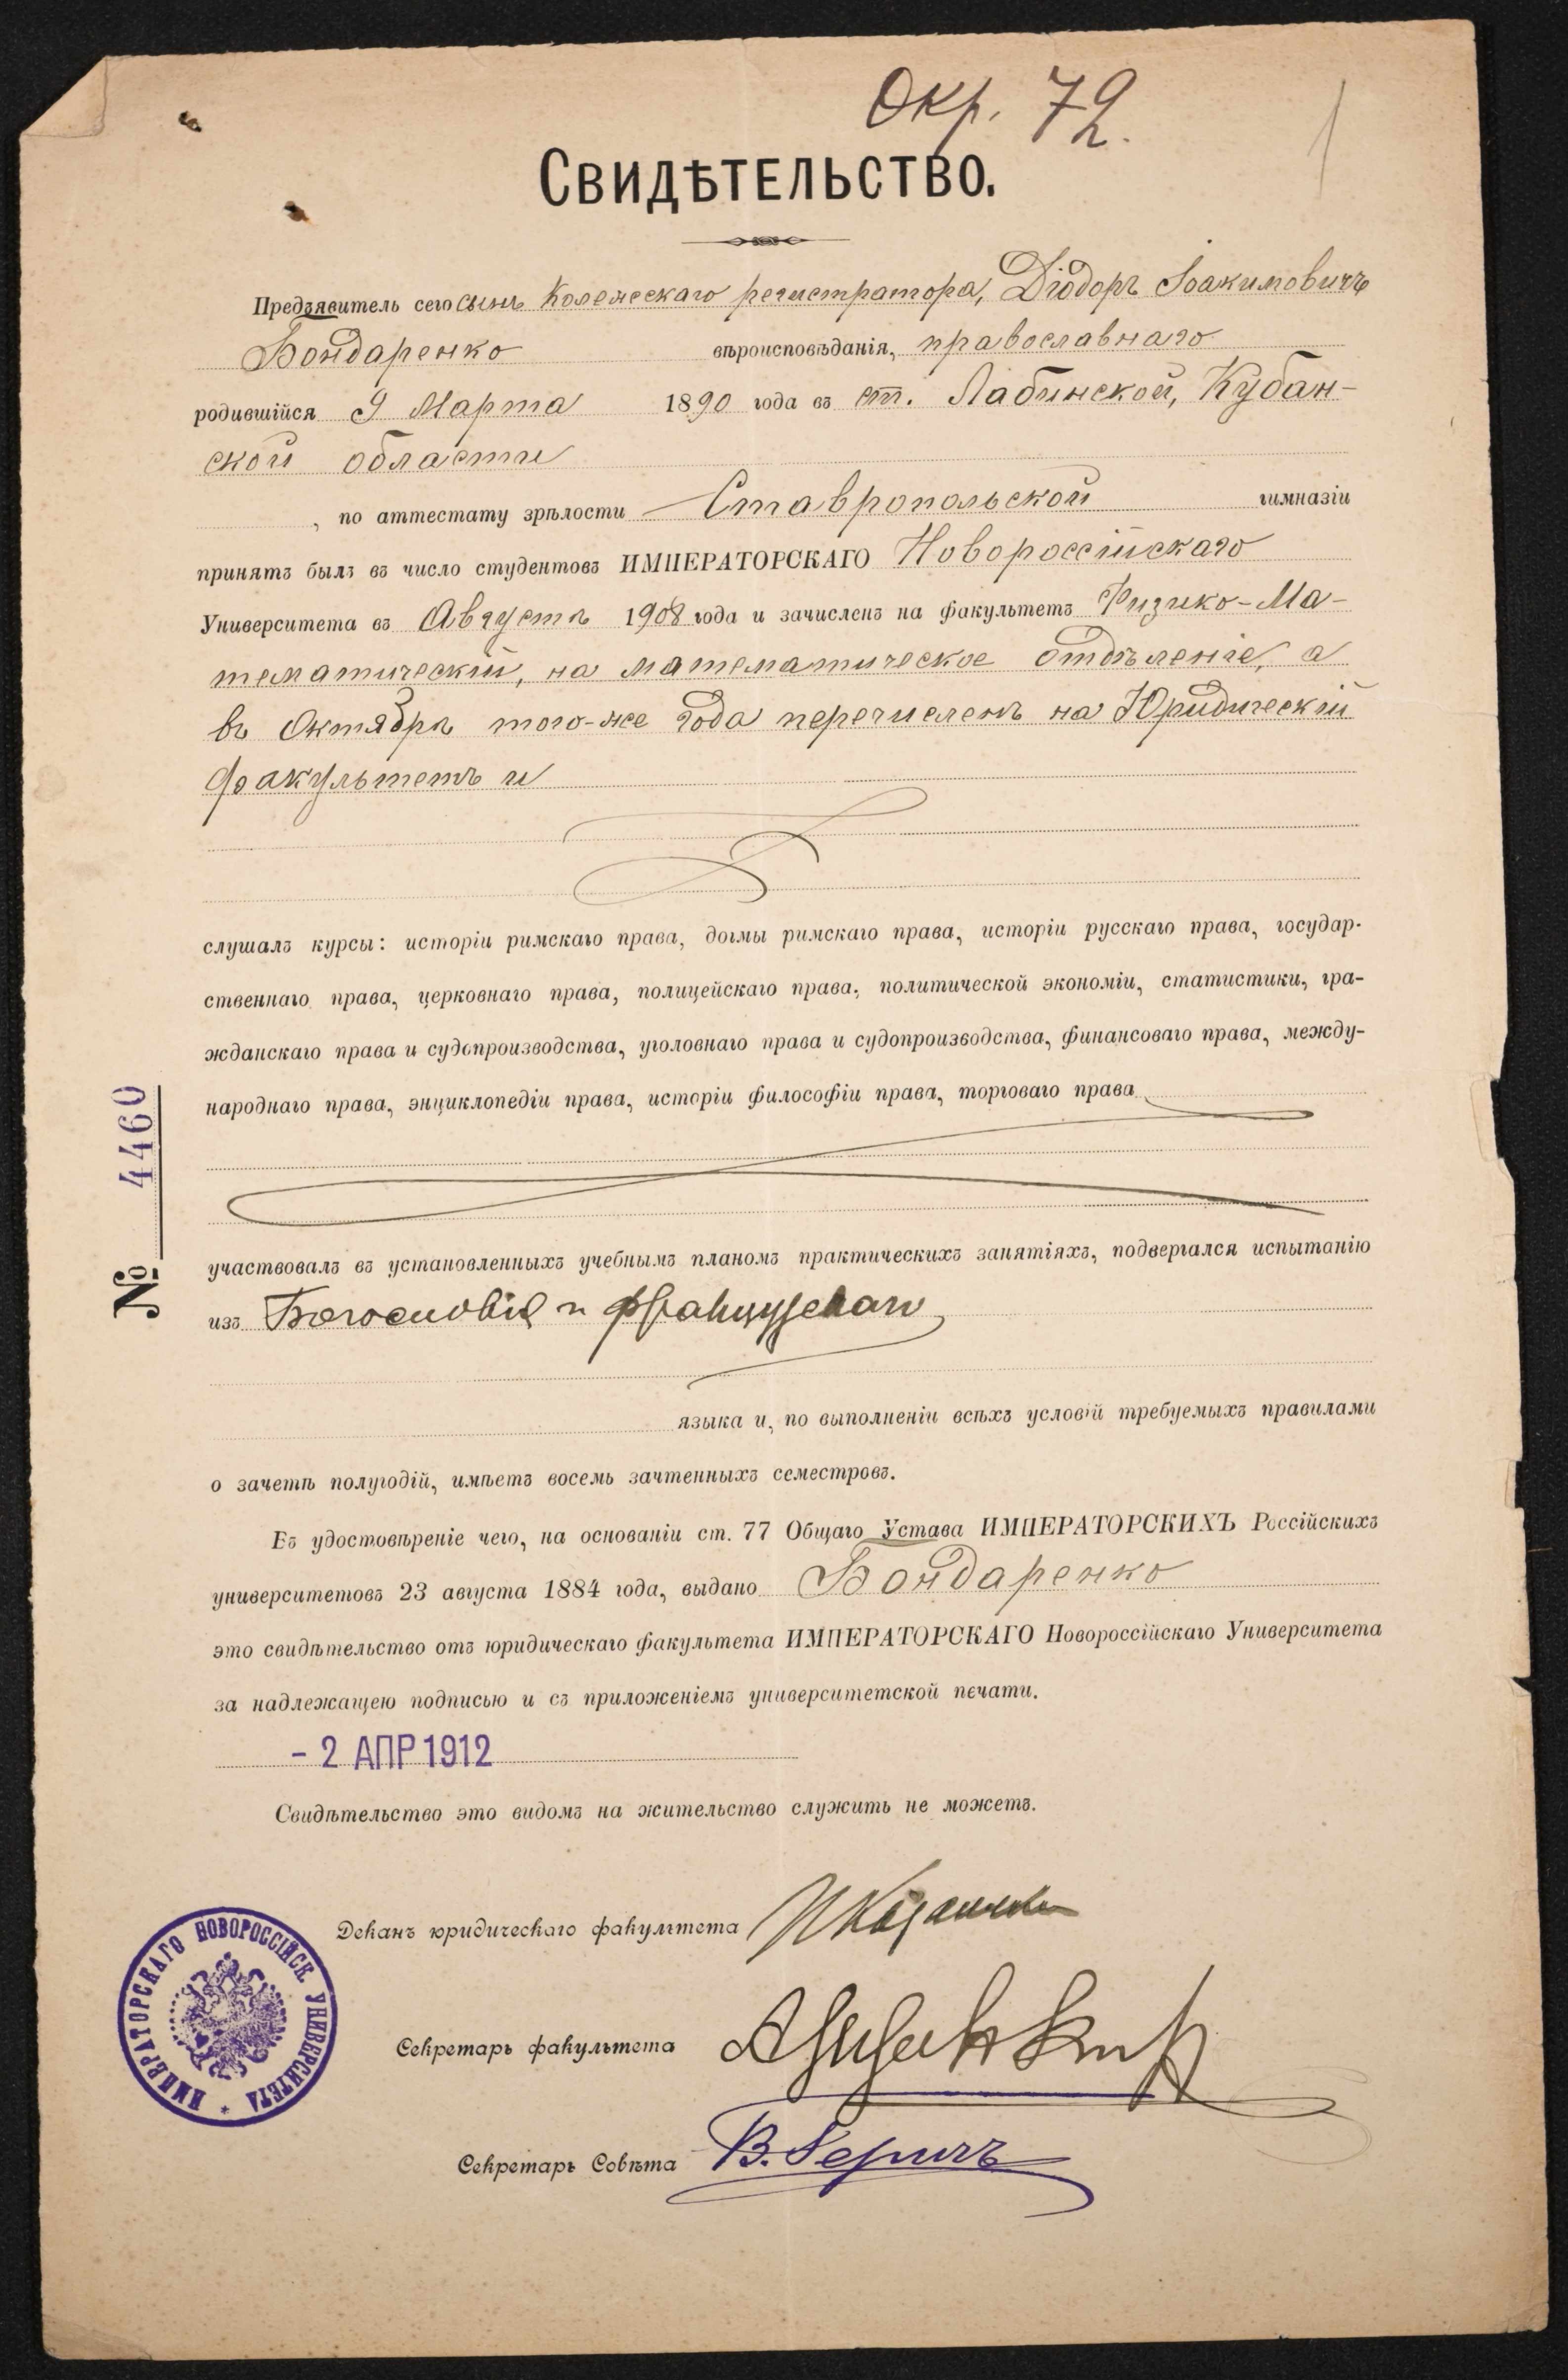 Окр. 72.
1
Свидѣтельство.
Предъявитель сего сынъ Коллежскаго регистратора, Діодоръ Іоакимовичъ
Бондаренко вѣроисповѣданія, православнаго
родившійся 9 Марта 1890 года въ ст. Лабинской, Кубан-
ской области
, по аттестату зрѣлости Ставропольской гимназіи
принятъ былъ въ число студентовъ ИМПЕРАТОРСКАГО Новороссійскаго
Университета въ Августѣ 1908 года и зачисленъ на факультетъ Физико-Ма-
тематическій, на математическое отдѣленіе, а
въ Октябрѣ того-же года перечисленъ на Юридическій
факультетъ и
слушалъ курсы: исторіи римскаго права, догмы римскаго права, исторіи русскаго права, государ-
ственнаго права, церковнаго права, полицейскаго права, политической экономіи, статистики, гра-
жданскаго права и судопроизводства, уголовнаго права и судопроизводства, финансоваго права, между-
народнаго права, энциклопедіи права, исторіи философіи права, торговаго права
№ 4460
участвовалъ въ установленныхъ учебнымъ планомъ практическихъ занятіяхъ, подвергался испытанію
изъ Богословія и французскаго
языка и, по выполненіи всѣхъ условій требуемыхъ правилами
о зачетѣ полугодій, имѣетъ восемь зачтенныхъ семестровъ.
Въ удостовѣреніе чего, на основаніи ст. 77 Общаго Устава ИМПЕРАТОРСКИХЪ Россійскихъ
университетовъ 23 августа 1884 года, выдано Бондаренко
это свидѣтельство отъ юридическаго факультета ИМПЕРАТОРСКАГО Новороссійскаго Университета
за надлежащею подписью и съ приложеніемъ университетской печати.
- 2 АПР 1912
Свидѣтельство это видомъ на жительство служить не можетъ.
Деканъ юридическаго факультета
Секретарь факультета
Секретарь Совѣта В. Геричъ
ИМПЕРАТОРСКАГО НОВОРОССІЙСК. УНИВЕРСИТЕТА *